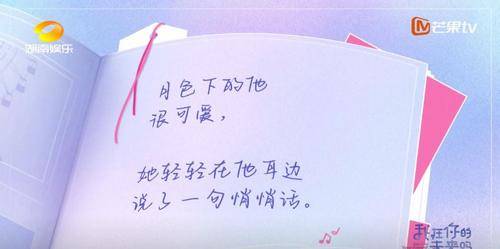 湖南娱乐
芒果tv
月色下的他
很可爱，
她轻轻在他耳边
说了一句悄悄话。
我在你的
未来吗